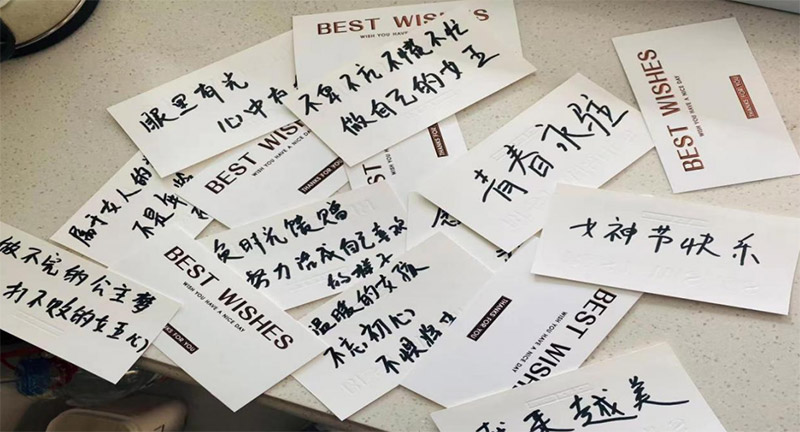 BEST WISHES
WISH YOU HAVE
眼里有光
心中有
不卑不亢不慌不忙
做自己的女王
THANKS FOR YOU
BEST WISHES
WISH YOU HAVE A NICE DAY
THANKS FOR YOU
BEST WISHES
WISH YOU HAVE A NICE DAY
THANKS FOR YOU
青春永驻
属于女人的
不是
负时光馈赠
努力活成自己喜欢
的样子
女神节快乐
做不完的公主梦
打不败的女王心
BEST WISHES
WISH YOU HAVE A NICE DAY
THANKS FOR YOU
温暖的女孩
不忘初心
不惧
THANKS FOR YOU
BEST WISHES
WISH YOU HAVE A NICE DAY
来越美